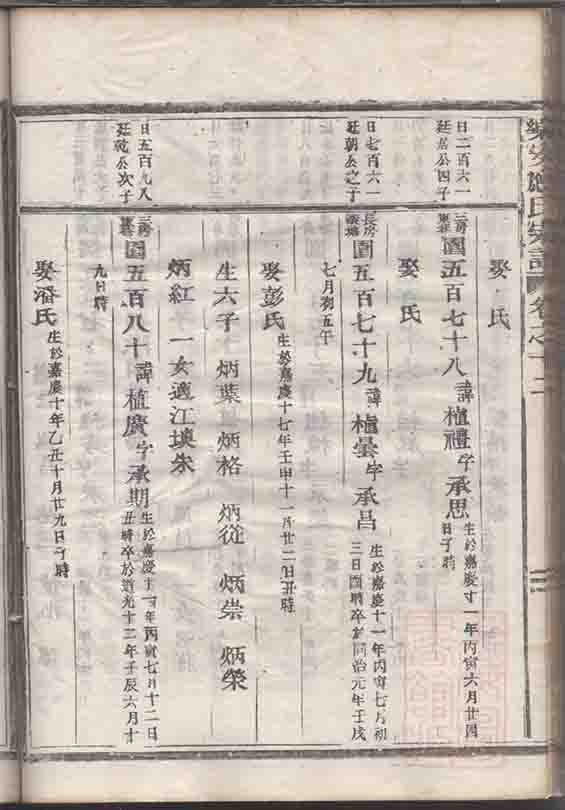 氏宗譜 卷之十二
娶 氏
日二百六一
廷居公四子
三房
圓五百七十八 諱植禮字承思 生於嘉慶十一年丙寅六月廿四
日子時
娶 氏
日七百六一
廷朝公之子
長房
圓五百七十九 諱植曇字承昌 生於嘉慶十一年丙寅七月初
三日酉時卒於同治元年壬戌
七月初五午
娶彭氏 生於嘉慶十七年壬申十一月廿二日丑時
生六子 炳葉 炳格 炳從 炳崇 炳榮
炳紅 一女適江墺朱
日五百九八
廷乾公次子
三房
圓五百八十 諱植廣字承期 生於嘉慶十一年丙寅七月十二日
丑時卒於道光十二年壬辰六月十
九日時
娶潘氏 生於嘉慶十年乙丑十月廿九日子時